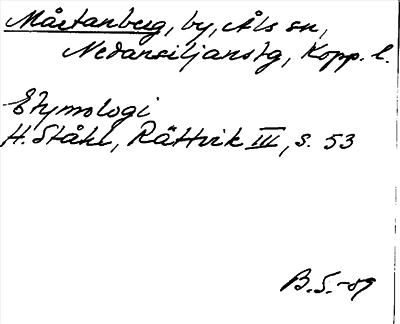 Mårtanberg, by, Åls sn,
Nedansiljanstg, Kopp. l.
Etymologi
H. Ståhl, Rättvik III, s. 53
B.S.-89